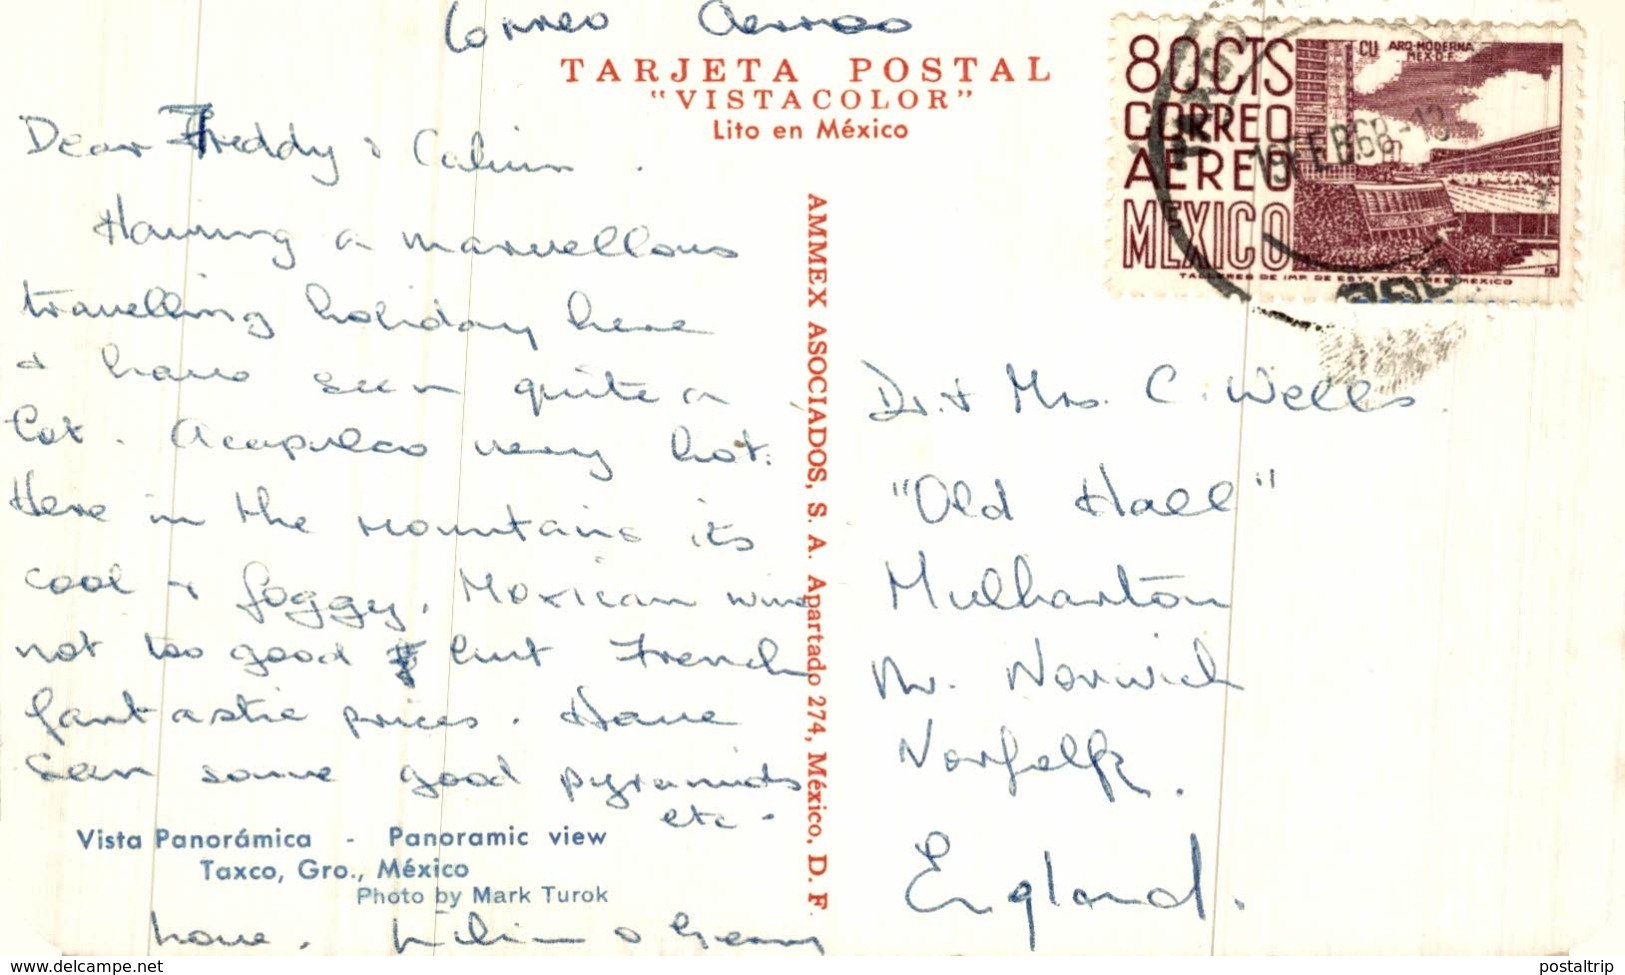 Correo Aereo
TARJETA POSTAL
"VISTACOLOR"
Lito en México
80 CTS
CORREO
AEREO
MEXICO
CU ARQ-MODERNA
MEX. D.F.
FEB 68
Dear Freddy & Calvin.
Having a marvellous
travelling holiday here
& have seen quite a
lot. Acapulco very hot.
Here in the mountains its
cool & foggy. Mexican wine
not too good but French
fantastic prices. Have
seen some good pyramids
etc.
Vista Panorámica - Panoramic view
Taxco, Gro., México
Photo by Mark Turok
Love.
AMMEX ASOCIADOS, S. A. Apartado 274, México, D. F.
Dr. & Mrs. C. Wells.
"Old Hall"
Mulharton
Nr. Norwich
Norfolk.
England.
www.delcampe.net
postaltrip